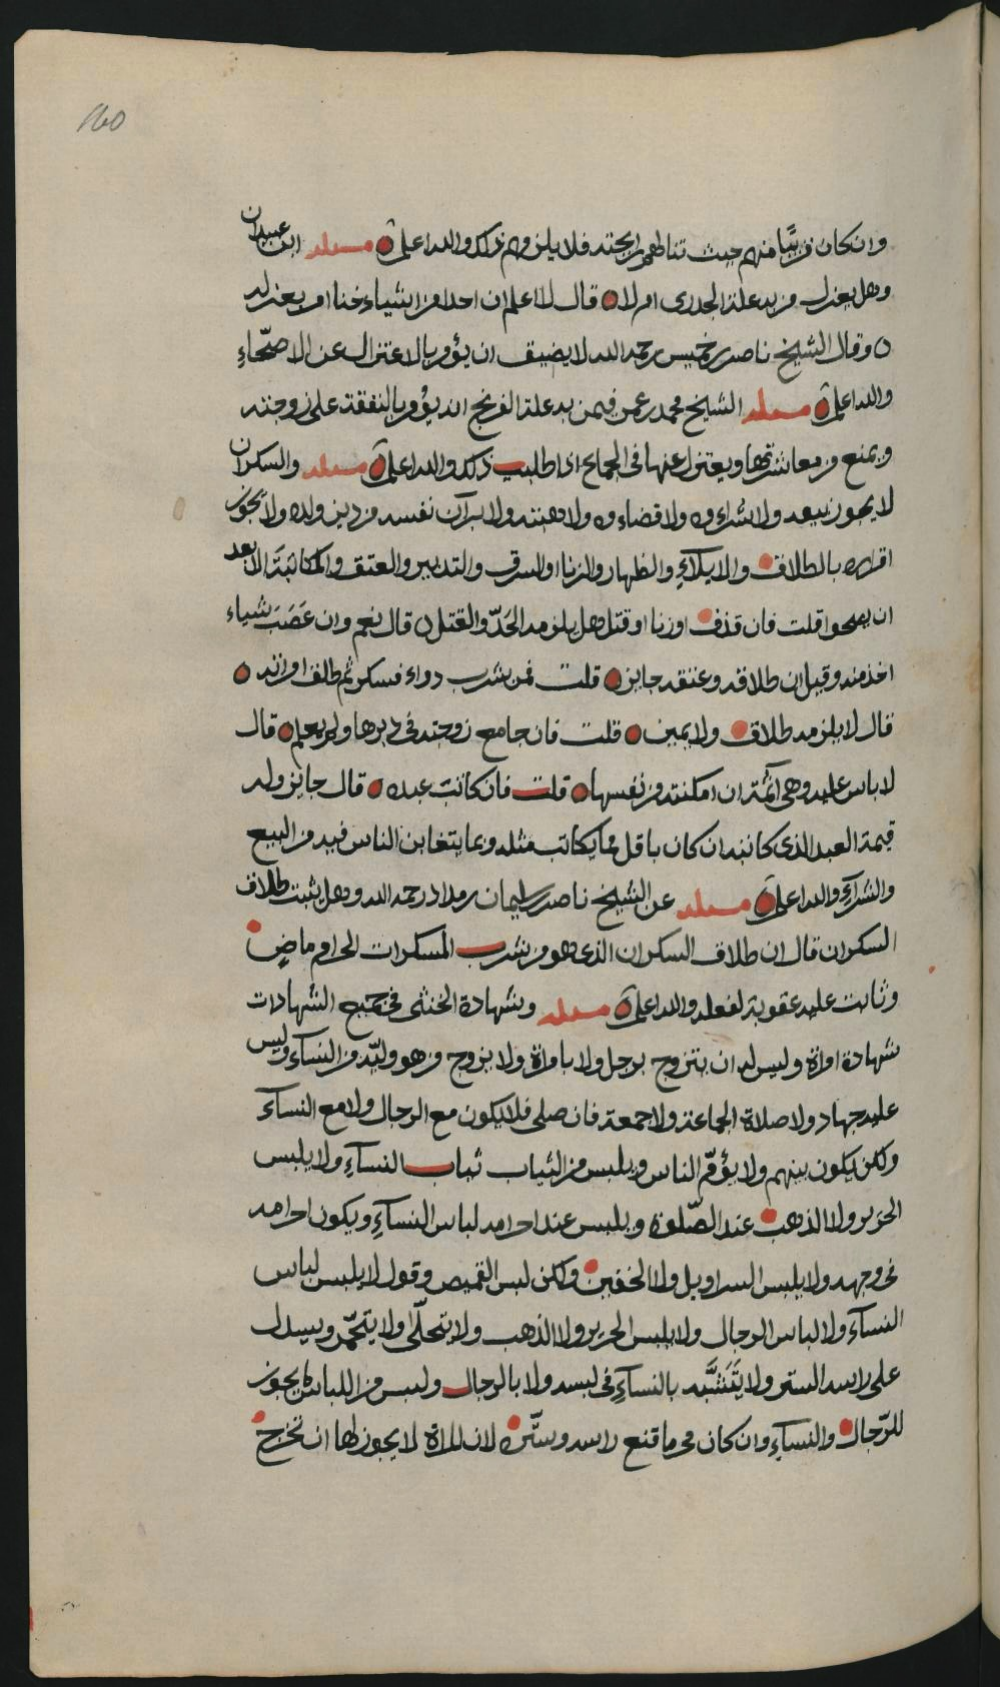 160
وان كان قريبا منهم حيث تناطهم رايحته فلا يلزمهم ذلك والله اعلم مسئلة ابن عبيدان
وهل يعزل من به علة الجدري ام لا قال لا اعلم ان احدا من اشياخنا امر بعزله
وقال الشيخ ناصر بن خميس رحمه الله لا يضيق ان يؤمر بالاعتزال عن الاصحّاء
والله اعلم مسئلة الشيخ محمد بن عمر فيمن به علة الفرنج انه يؤمر بالنفقة على زوجته
ويمنع من معاشرتها ويعتزل عنها في الجماع اذا طلبت ذلك والله اعلم مسئلة والسكران
لا يجوز بيعه ولا شراءه ولا قضاءه ولا هبته ولا برآن نفسه من دين ولده ولا يجوز
اقراره بالطلاق والايلآء والظهار والزنا والسرق والتدبير والعتق والمكاتبة الا بعد
ان يصحوا قلت فان قذف او زنا او قتل هل يلزمه الحَدّ والقتل قال نعم وان غصَبَ شياء
اخذ منه وقيل ان طلاقه وعتقه جايز قلت فمن شرب دواء فسكر ثم طلق او ارتد
قال لا يلزمه طلاق ولا يمين قلت فان جامع زوجته في دبرها ولم يعلم قال
لا باس عليه وهي آثمة ان امكنته من نفسها قلت فان كاتب عبده قال جايز وله
قيمة العبد الذي كاتبه ان كان باقل مما يكاتب مثله وما يتغابن الناس فيه من البيع
والشرآء والله اعلم مسئلة عن الشيخ ناصر بن سليمان بن مداد رحمه الله وهل يثبت طلاق
السكران قال ان طلاق السكران الذي هو من شرب المسكرات الحرام ماضٍ
وثابت عليه عقوبة لفعله والله اعلم مسئلة وشهادة الخنثى في جميع الشهادات
شهادة امراة وليس له ان يتزوج برجل ولا بامراة ولا يزوج من هو وليّه من النسآء وليس
عليه جهاد ولا صلاة الجماعة ولا جمعة فان صلى فلا يكون مع الرجال ولا مع النسآء
ولكن يكون بينهم ولا يؤمّ الناس ويلبس من الثياب ثياب النسآء ولا يلبس
الحرير ولا الذهب عند الصّلوة ويلبس عند احرامه لباس النسآء ويكون احرامه
في وجهه ولا يلبس السراويل ولا الخفين ولكن لبس القميص وقول لا يلبس لباس
النسآء ولا لباس الرجال ولا يلبس الحرير ولا الذهب ولا يتحلّى ولا يتخمّر ويسدل
على راسه الستر ولا يَتَشَبَّه بالنسآء في لبسه ولا بالرجال ولبس من اللباس ما يجوز
للرّجال والنسآء وان كان محرما قنع راسه وستّره لان المراة لا يجوز لها ان تخرج